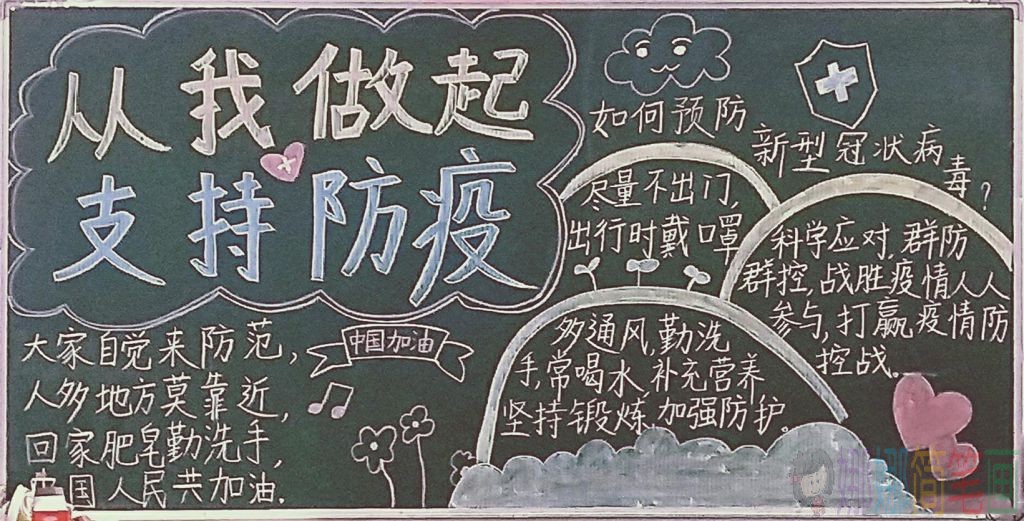 从我做起
支持防疫
大家自觉来防范，
人多地方莫靠近，
回家肥皂勤洗手，
中国人民共加油.
中国加油
如何预防
新型冠状病
毒？
尽量不出门，
出行时戴口罩
科学应对，群防
群控，战胜疫情人人
参与，打赢疫情防
控战。
多通风，勤洗
手，常喝水，补充营养
坚持锻炼，加强防护。
简笔画